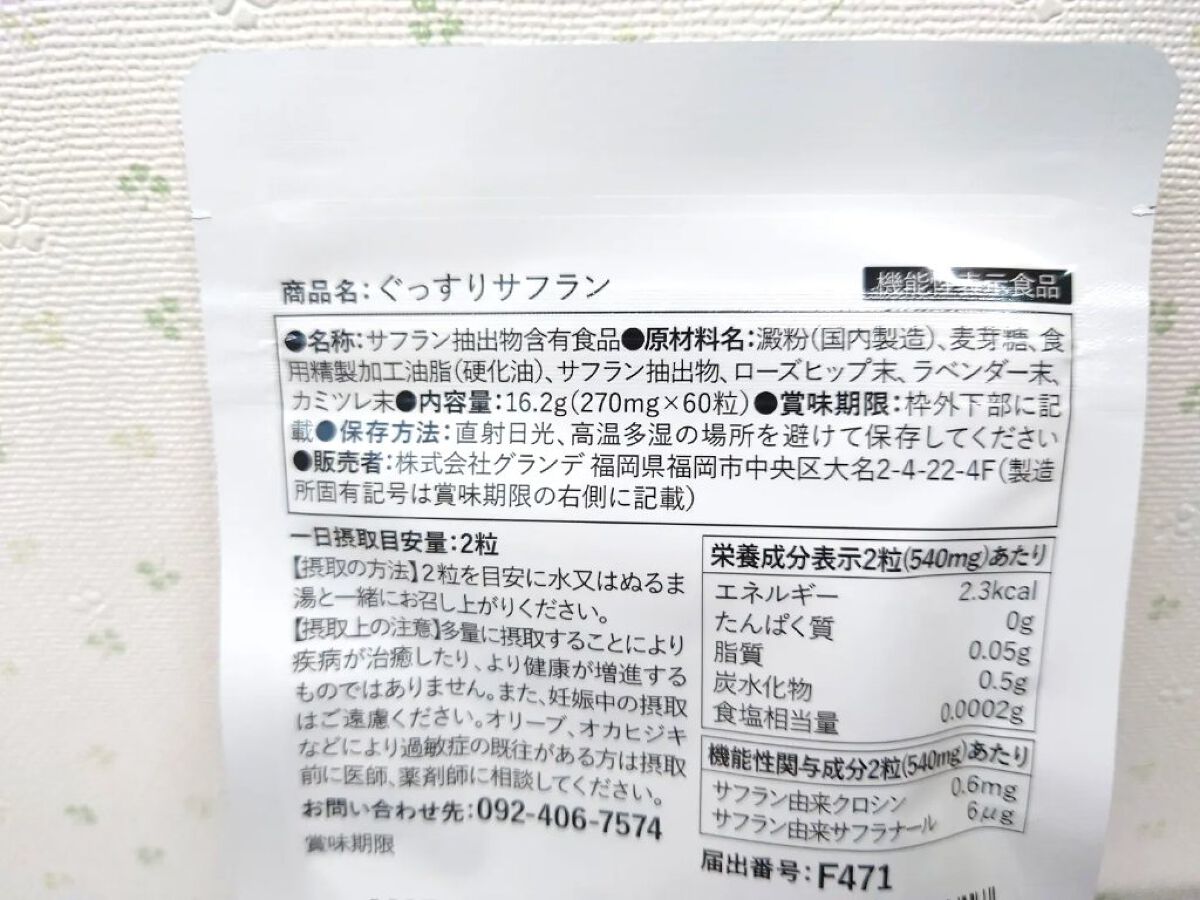 商品名：ぐっすりサフラン
機能性表示食品
●名称：サフラン抽出物含有食品●原材料名：澱粉（国内製造）、麦芽糖、食
用精製加工油脂（硬化油）、サフラン抽出物、ローズヒップ末、ラベンダー末、
カミツレ末●内容量：16.2g（270mg×60粒）●賞味期限：枠外下部に記
載●保存方法：直射日光、高温多湿の場所を避けて保存してください
●販売者：株式会社グランデ 福岡県福岡市中央区大名2-4-22-4F（製造
所固有記号は賞味期限の右側に記載）
一日摂取目安量：2粒
【摂取の方法】2粒を目安に水又はぬるま
湯と一緒にお召し上がりください。
【摂取上の注意】多量に摂取することにより
疾病が治癒したり、より健康が増進する
ものではありません。また、妊娠中の摂取
はご遠慮ください。オリーブ、オカヒジキ
などにより過敏症の既往がある方は摂取
前に医師、薬剤師に相談してください。
お問い合わせ先：092-406-7574
賞味期限
栄養成分表示2粒(540mg)あたり
エネルギー 2.3kcal
たんぱく質 0g
脂質 0.05g
炭水化物 0.5g
食塩相当量 0.0002g
機能性関与成分2粒(540mg)あたり
サフラン由来クロシン 0.6mg
サフラン由来サフラナール 6μg
届出番号：F471